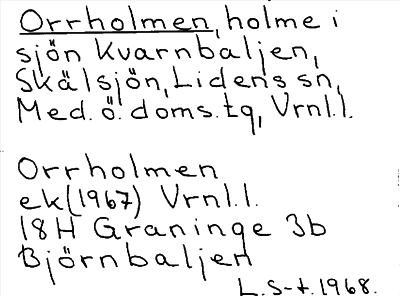 Orrholmen, holme i
sjön Kvarnbaljen,
Skälsjön, Lidens sn,
Med. ö. doms. tg, Vrnl.l.
Orrholmen
ek (1967) Vrnl.l.
18H Graninge 3b
Björnbaljen
L. S-t. 1968.